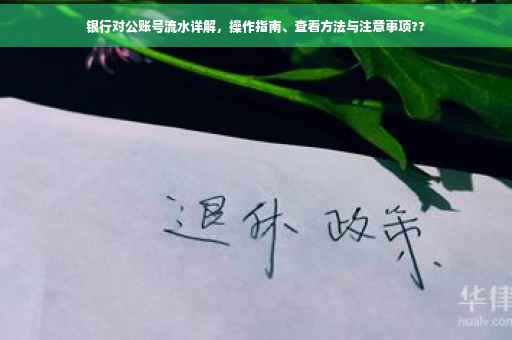 银行对公账号流水详解，操作指南、查看方法与注意事项??
退休 政策
华律
hualv.com